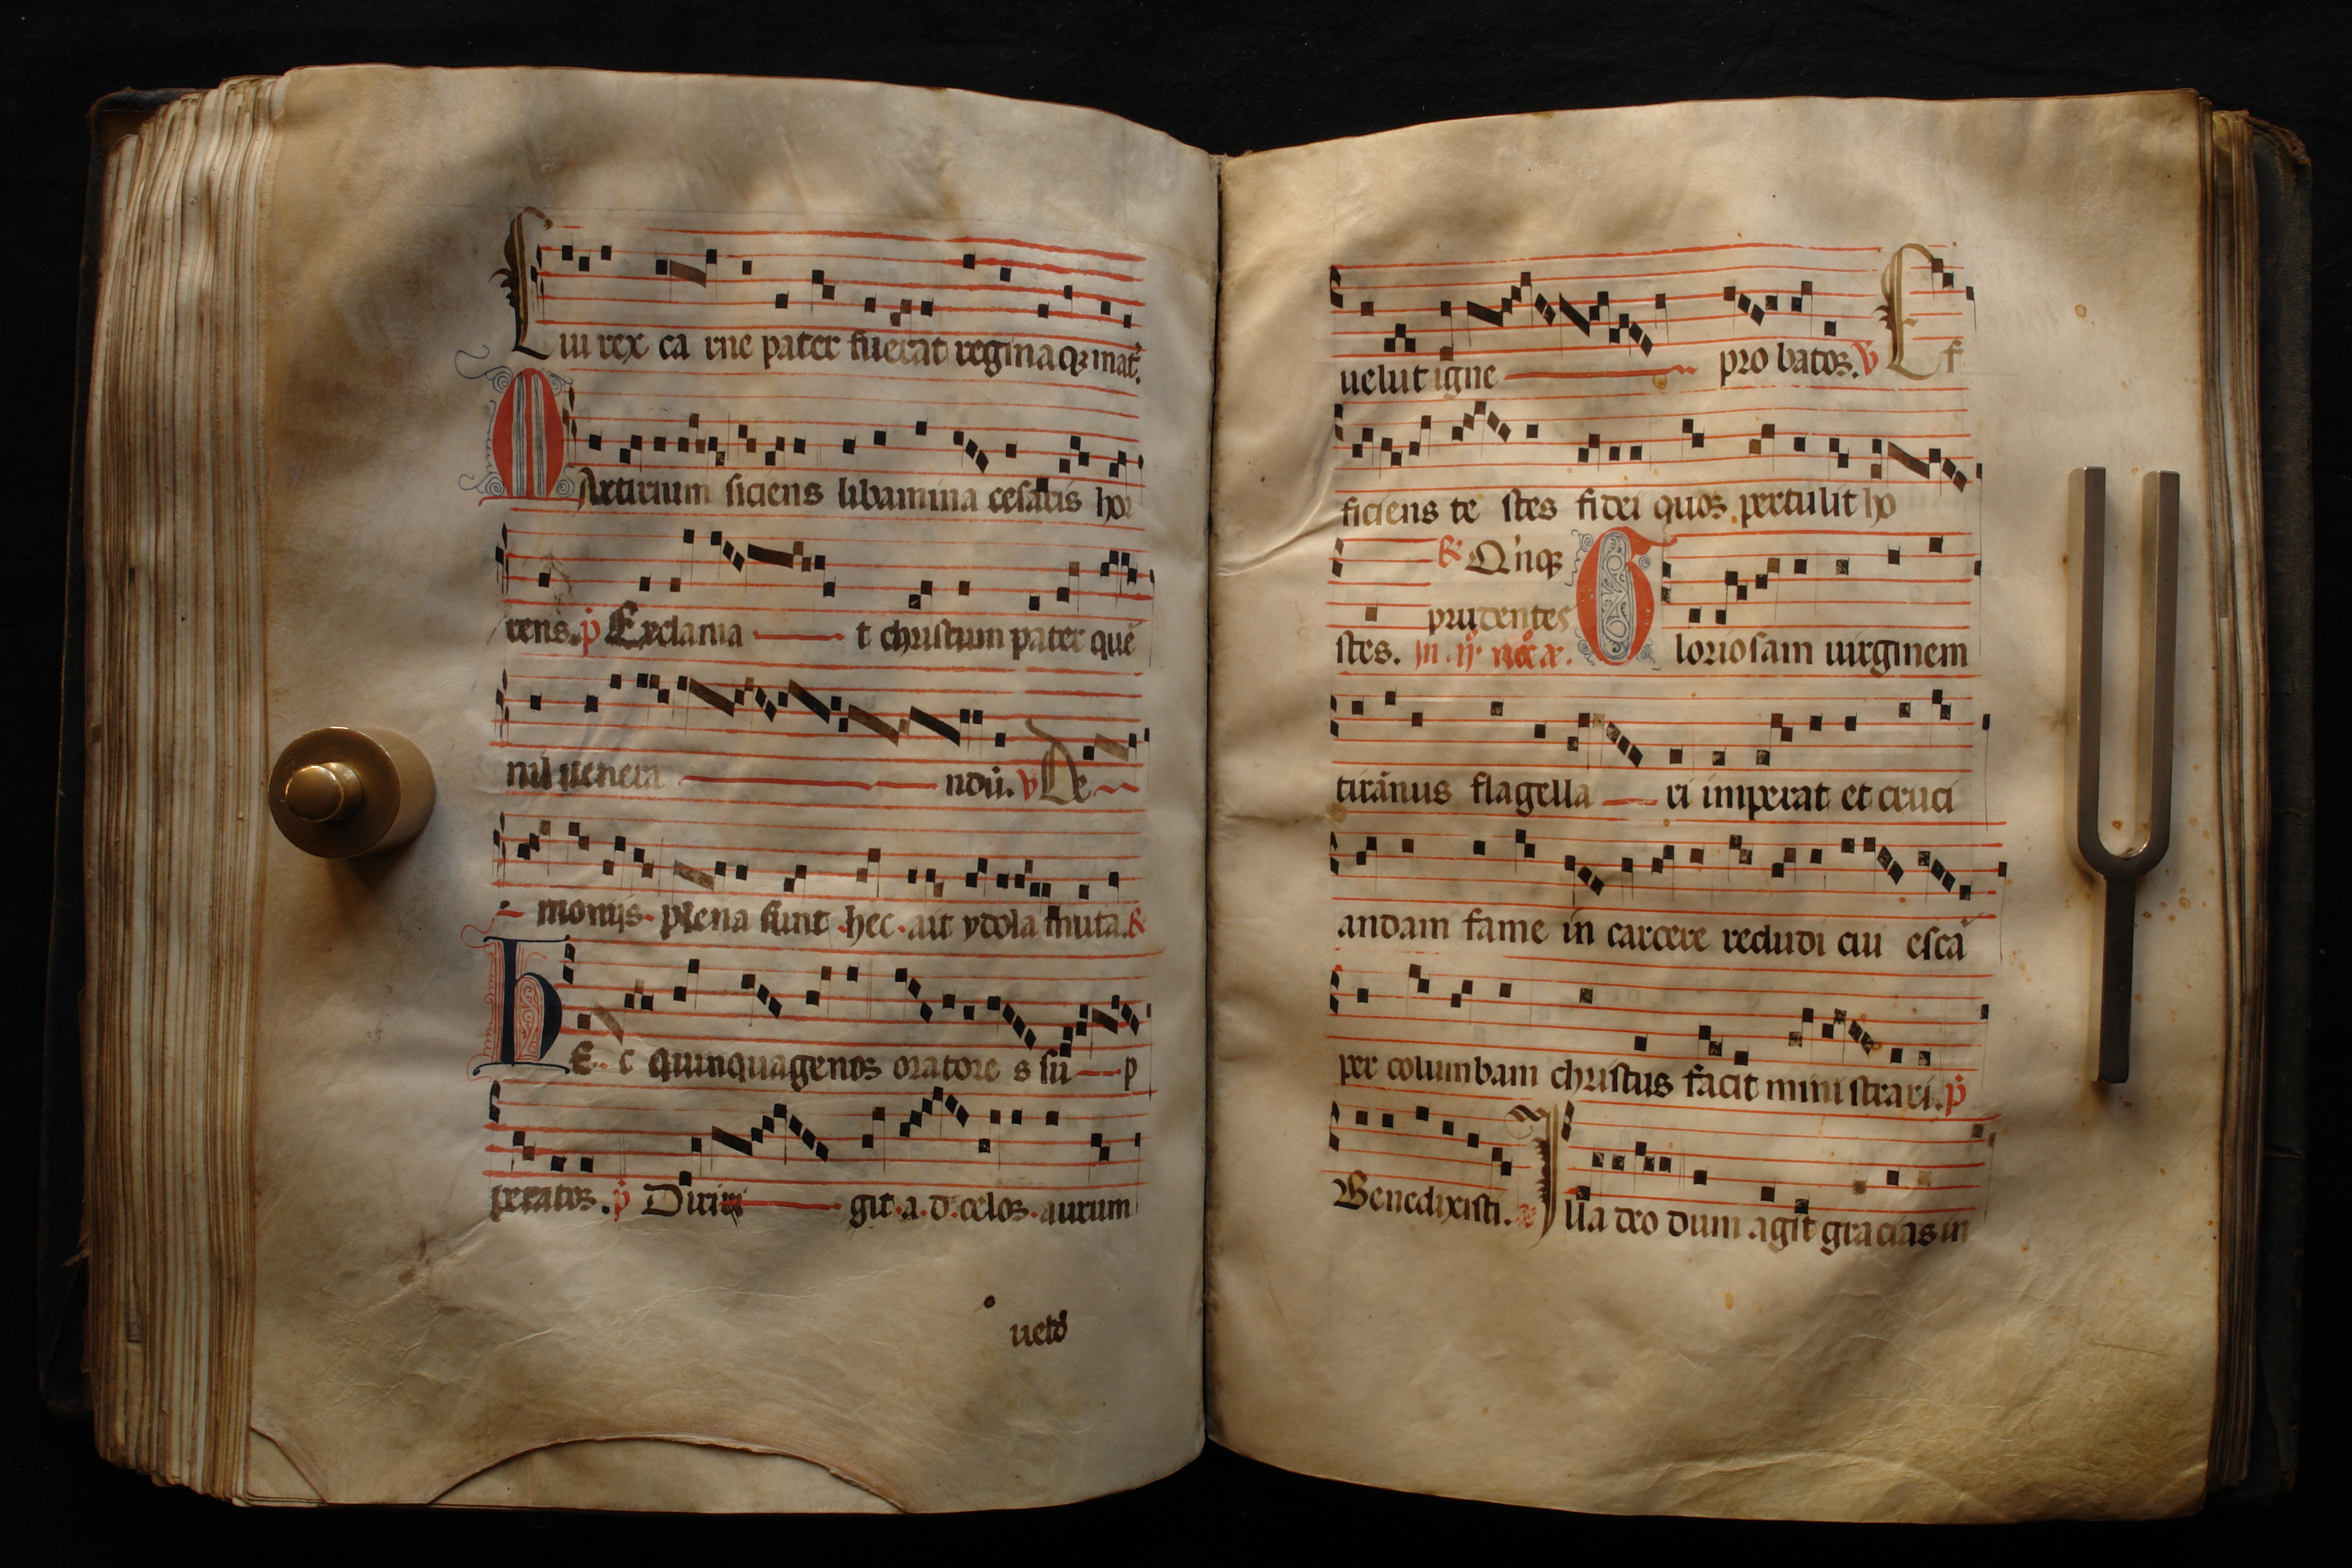 Cui rex ca rne pater fuerat reginaqꝫ mat̉.
MArtirium siciens libamina cesaris hor
rens. p̉ Exclama t christum pater quē
nil uenera ndū. v De
monijs plena sunt hec ait ydola muta. ꝶ
hE c quinquagenos oratore s su p
peratos. p̉ Dirin git a d celos aurum
uelud
uelut igne pro batos. v Ef
ficiens te stes fidei quos pertulit ho
ꝶ Q'nqꝫ
prudentes
stes. jn ij noc̄ a. Gloriosam uirginem
tirānus flagella ri imperat et cruci
andam fame in carcere recludi cui escā
per columbam christus facit mini strari. p̉
Benedixisti. a Illa deo dum agit gracias in